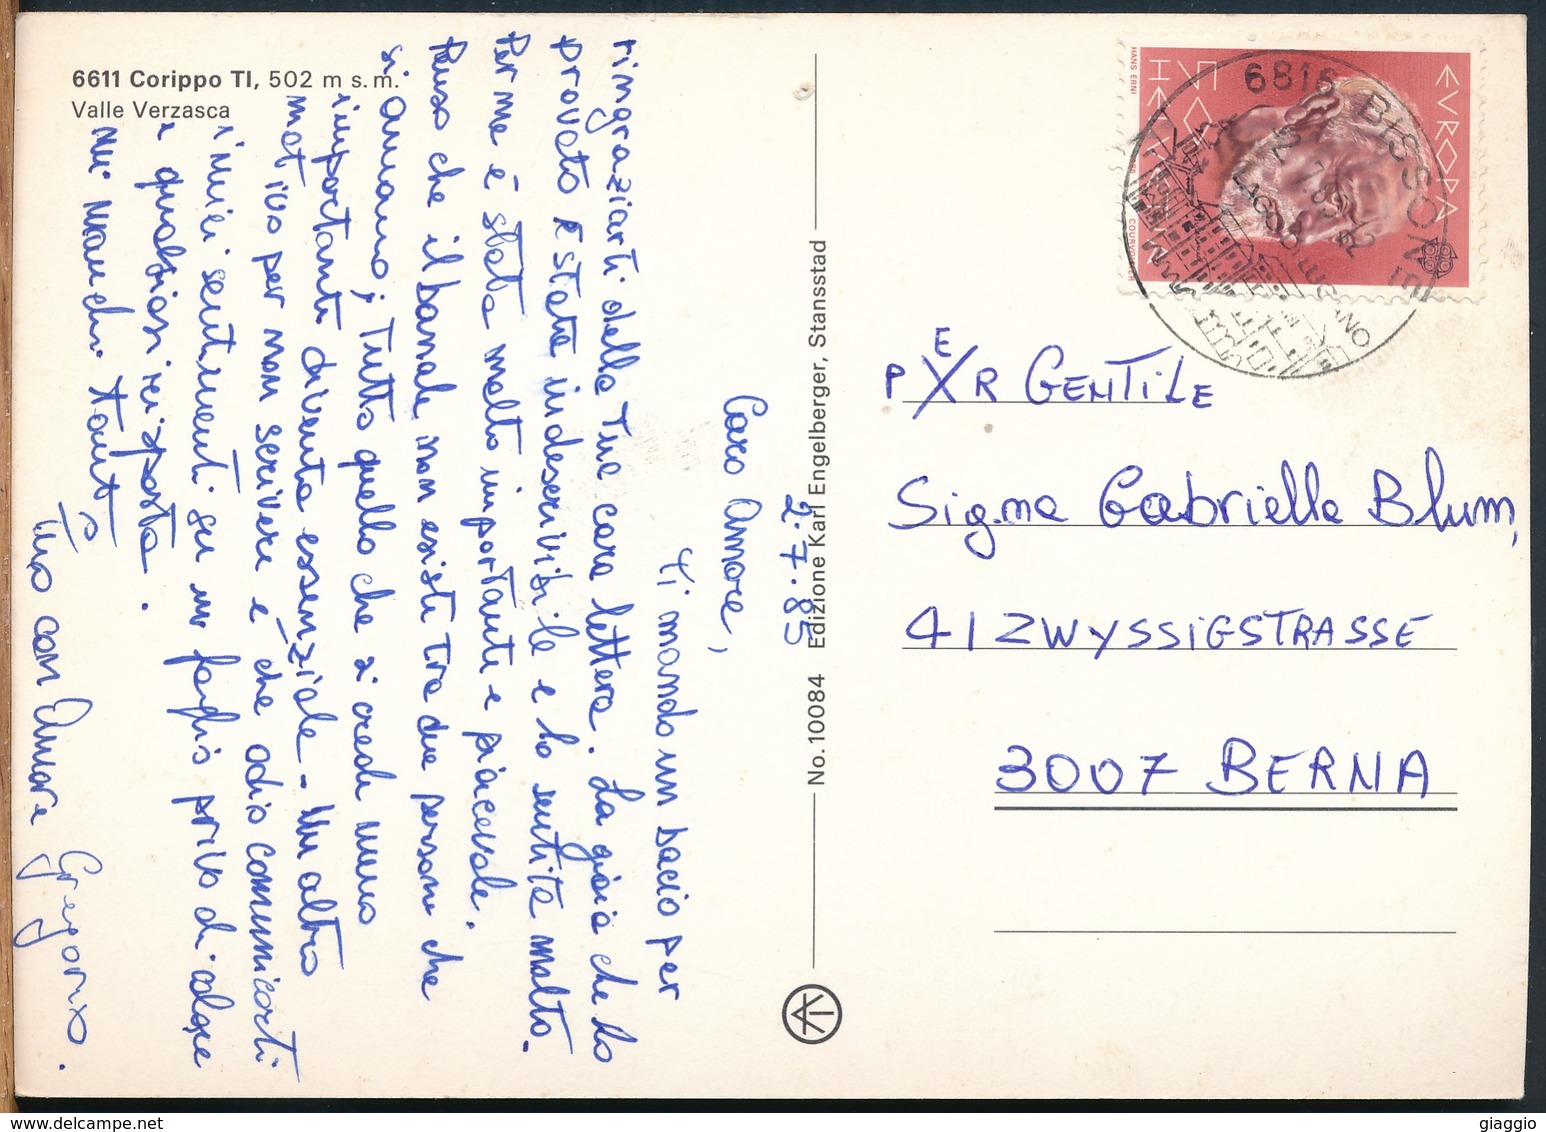 6611 Corippo TI, 502 m s.m.
Valle Verzasca
2.7.85
Caro Amore,
ti mando un bacio per
ringraziarti della Tua cara lettera. La gioia che ho
provato è stata indescrivibile e ho sentita molto.
Per me è stata molto importante e piacevole.
Penso che il banale non esiste tra due persone che
si amano; Tutto quello che si crede meno
importante diventa essenziale. Un altro
motivo per non scrivere è che odio comunicarti
i miei sentimenti su un foglio privo di calore
e qualsiasi risposta.
Mi manchi tanto
Tuo con Amore Gregorio.
No. 10084 Edizione Karl Engelberger, Stansstad
HANS ERNI
HELVETIA
EUROPA
COURVOISIER
6816 BISSONE
2.7.85-12
LAGO DI LUGANO
PER GENTILE
E
Sig.na Gabriella Blum,
41 ZWYSSIGSTRASSE
3007 BERNA
giaggio